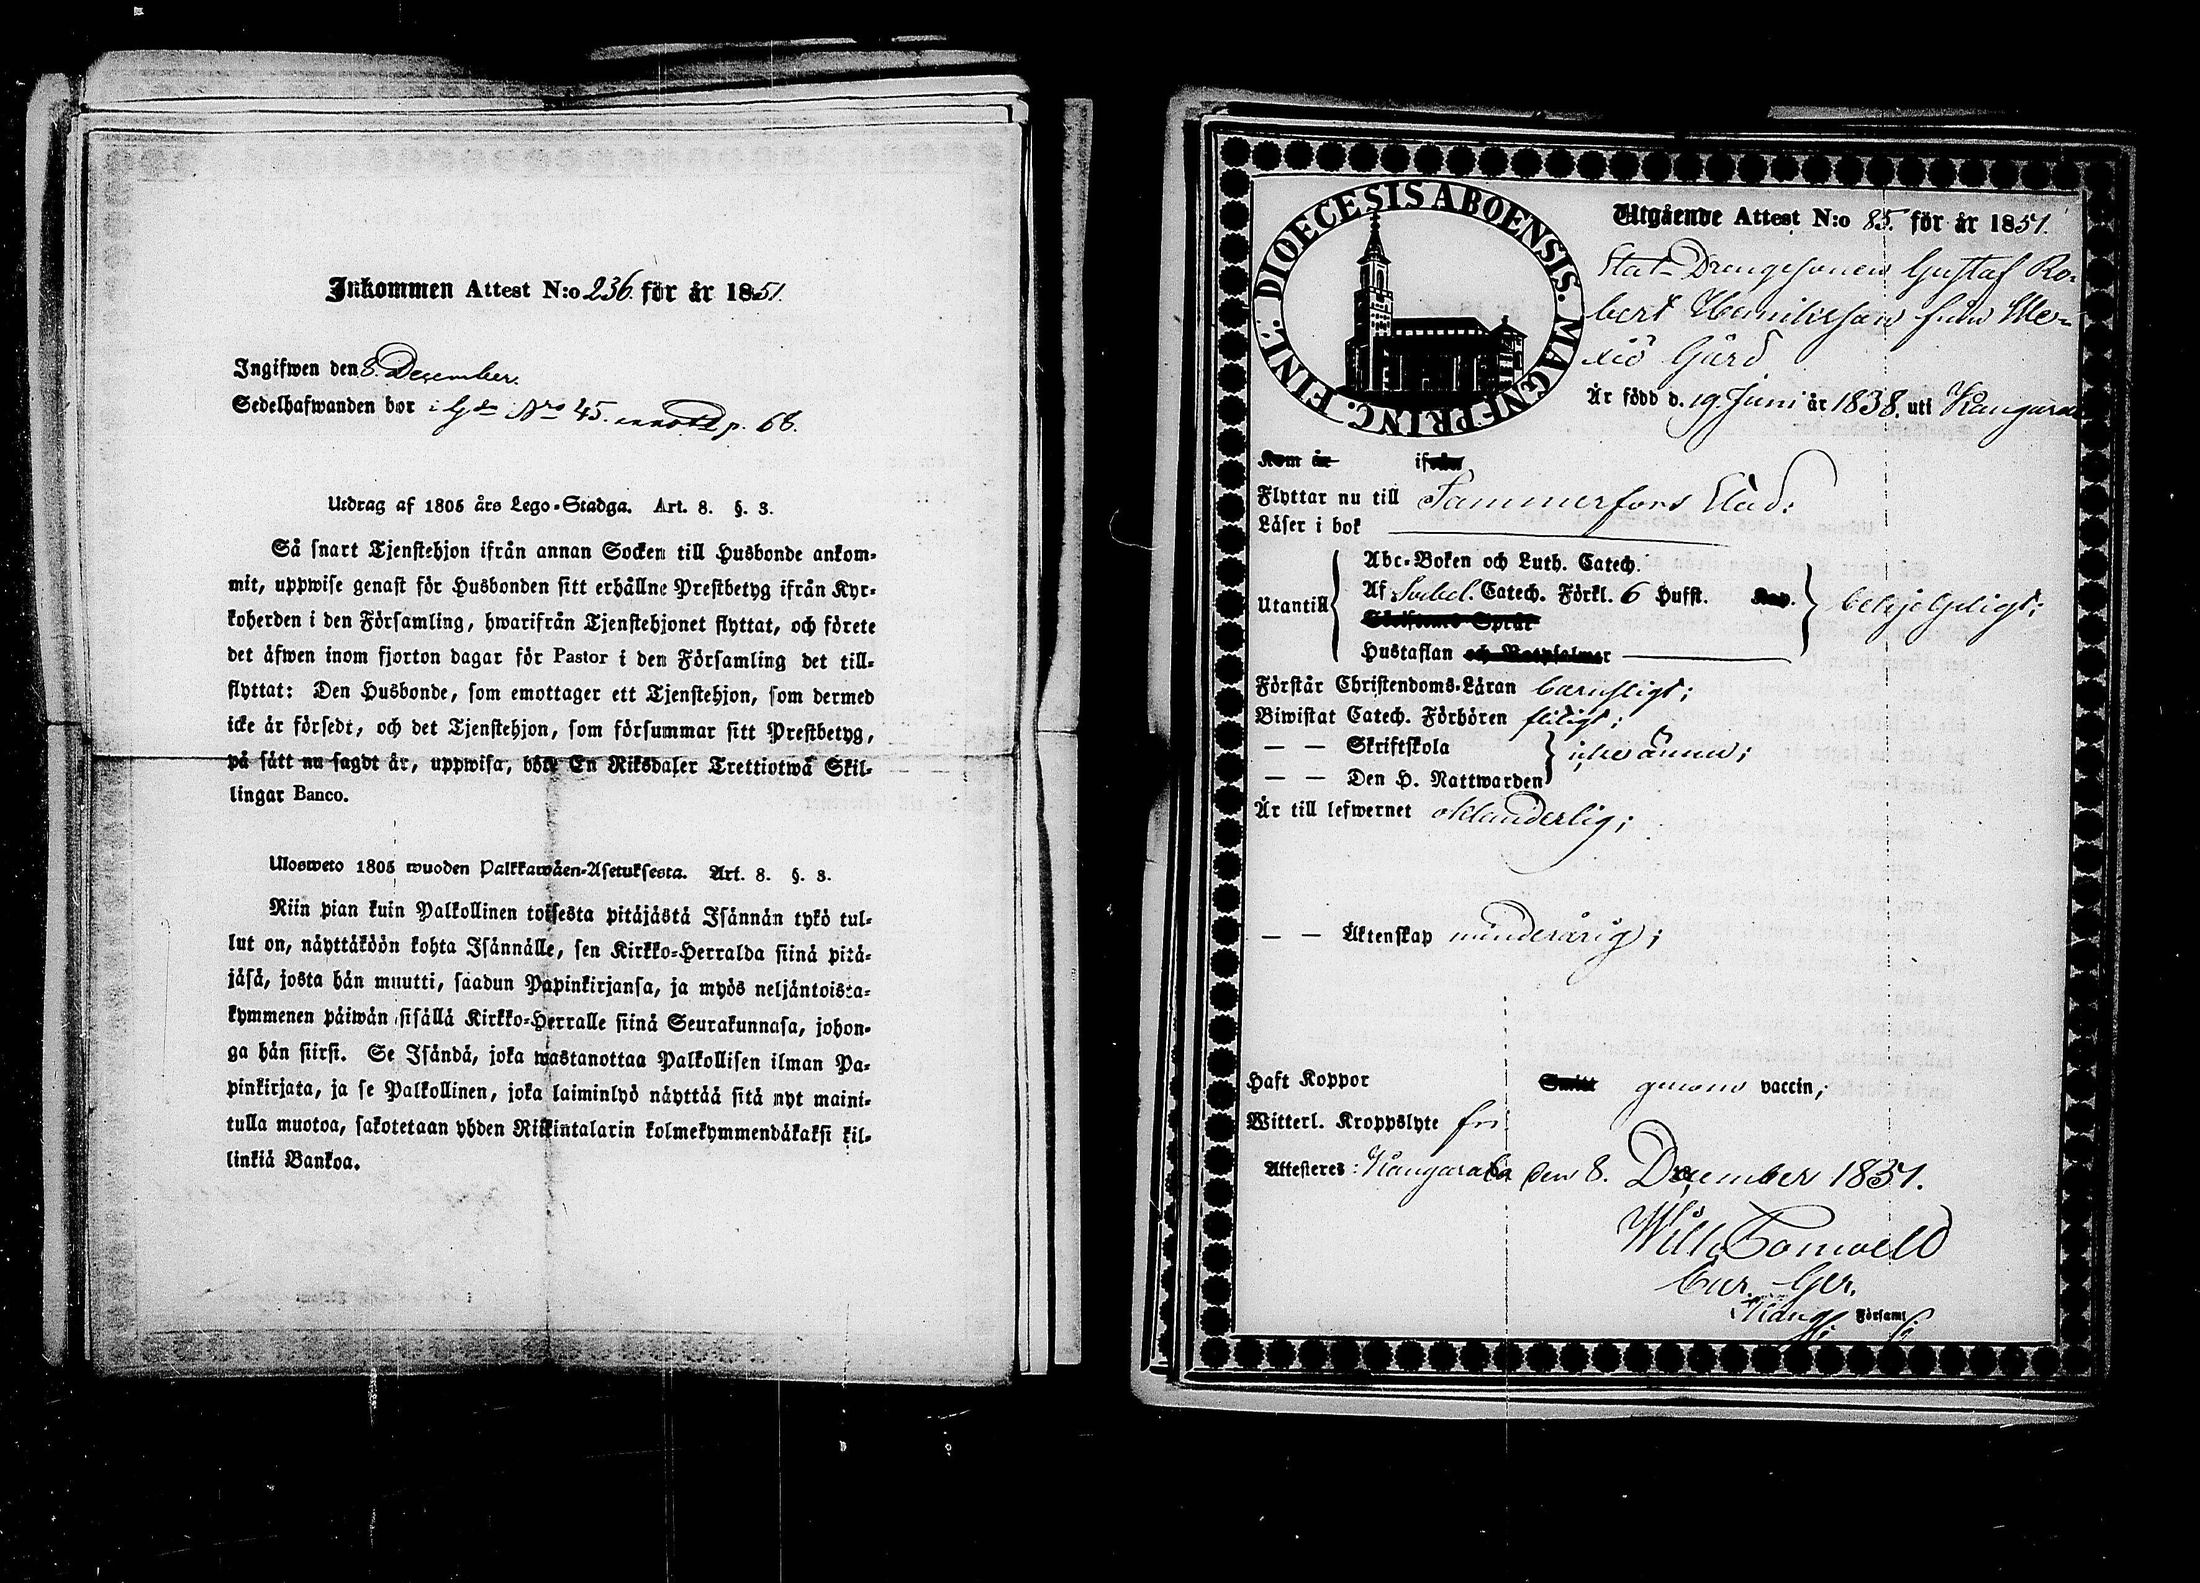 Inkommen Attest N:o 236. för år 1851.
Ingifwen den 8. December.
Sedelhafwanden bor i Gdn Nro 45. annoterad p. 68.
Utdrag af 1805 års Lego-Stadga. Art. 8. §. 3.
Så snart Tjenstehjon ifrån annan Socken till Husbonde ankom-
mit, uppwise genast för Husbonden sitt erhållne Prestbetyg ifrån Kyr-
koherden i den Församling, hwarifrån Tjenstehjonet flyttat, och förete
det äfwen inom fjorton dagar för Pastor i den Församling det till-
flyttat: Den Husbonde, som emottager ett Tjenstehjon, som dermed
icke är försedt, och det Tjenstehjon, som försummar sitt Prestbetyg,
på sätt nu sagdt är, uppwisa, böte En Riksdaler Trettiotwå Skil-
lingar Banco.
Ulosweto 1805 wuoden Palkkawäen-Asetuksesta. Art. 8. §. 3.
Niin pian kuin Palkollinen toisesta pitäjästä Isännän tykö tul-
lut on, näyttäköön kohta Isännälle, sen Kirkko-Herralda siinä pitä-
jäsä, josta hän muutti, saadun Papinkirjansa, ja myös neljäntoista-
kymmenen päiwän sisällä Kirkko-Herralle siinä Seurakunnasa, johon-
ga hän siirsi. Se Isändä, joka wastanottaa Palkollisen ilman Pa-
pinkirjata, ja se Palkollinen, joka laiminlyö näyttää sitä nyt maini-
tulla muotoa, sakotetaan yhden Riikintalarin kolmekymmendäkaksi kil-
linkiä Bankoa.
DIOECESIS ABOENSIS. MAGNI PRINC. FINL.
Utgående Attest N:o 85. för år 1851.
Stat-Drengesonen Gustaf Ro-
bert Henriksson från We-
xiö Gård
Är född d. 19. Juni år 1838. uti Kangasala
Kom år ifrån
Flyttar nu till Tammerfors Stad:
Läser i bok
Abc-Boken och Luth. Catech.
Utantill Af Svebel. Catech. Förkl. 6 Hufst. Kap. behjelpligt;
Gåtfrens Språk
Hustaflan och Botpsalmer
Förstår Christendoms-Läran barnsligt;
Biwistat Catech. Förhören flitigt;
— — Skriftskola icke ännu;
— — Den H. Nattwarden
Är till lefwernet oklanderlig;
— — Äktenskap minderårig;
Haft Koppor Smitt genom vaccin;
Witterl. Kroppslyte fri
Attesteres: Kangasala den 8. December 1851.
Wilh.
Cur. Ger.
Kang Församl